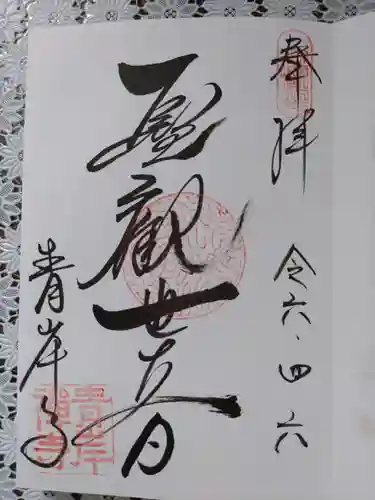 奉拝
令六・四・六
聖観世音
青岸寺